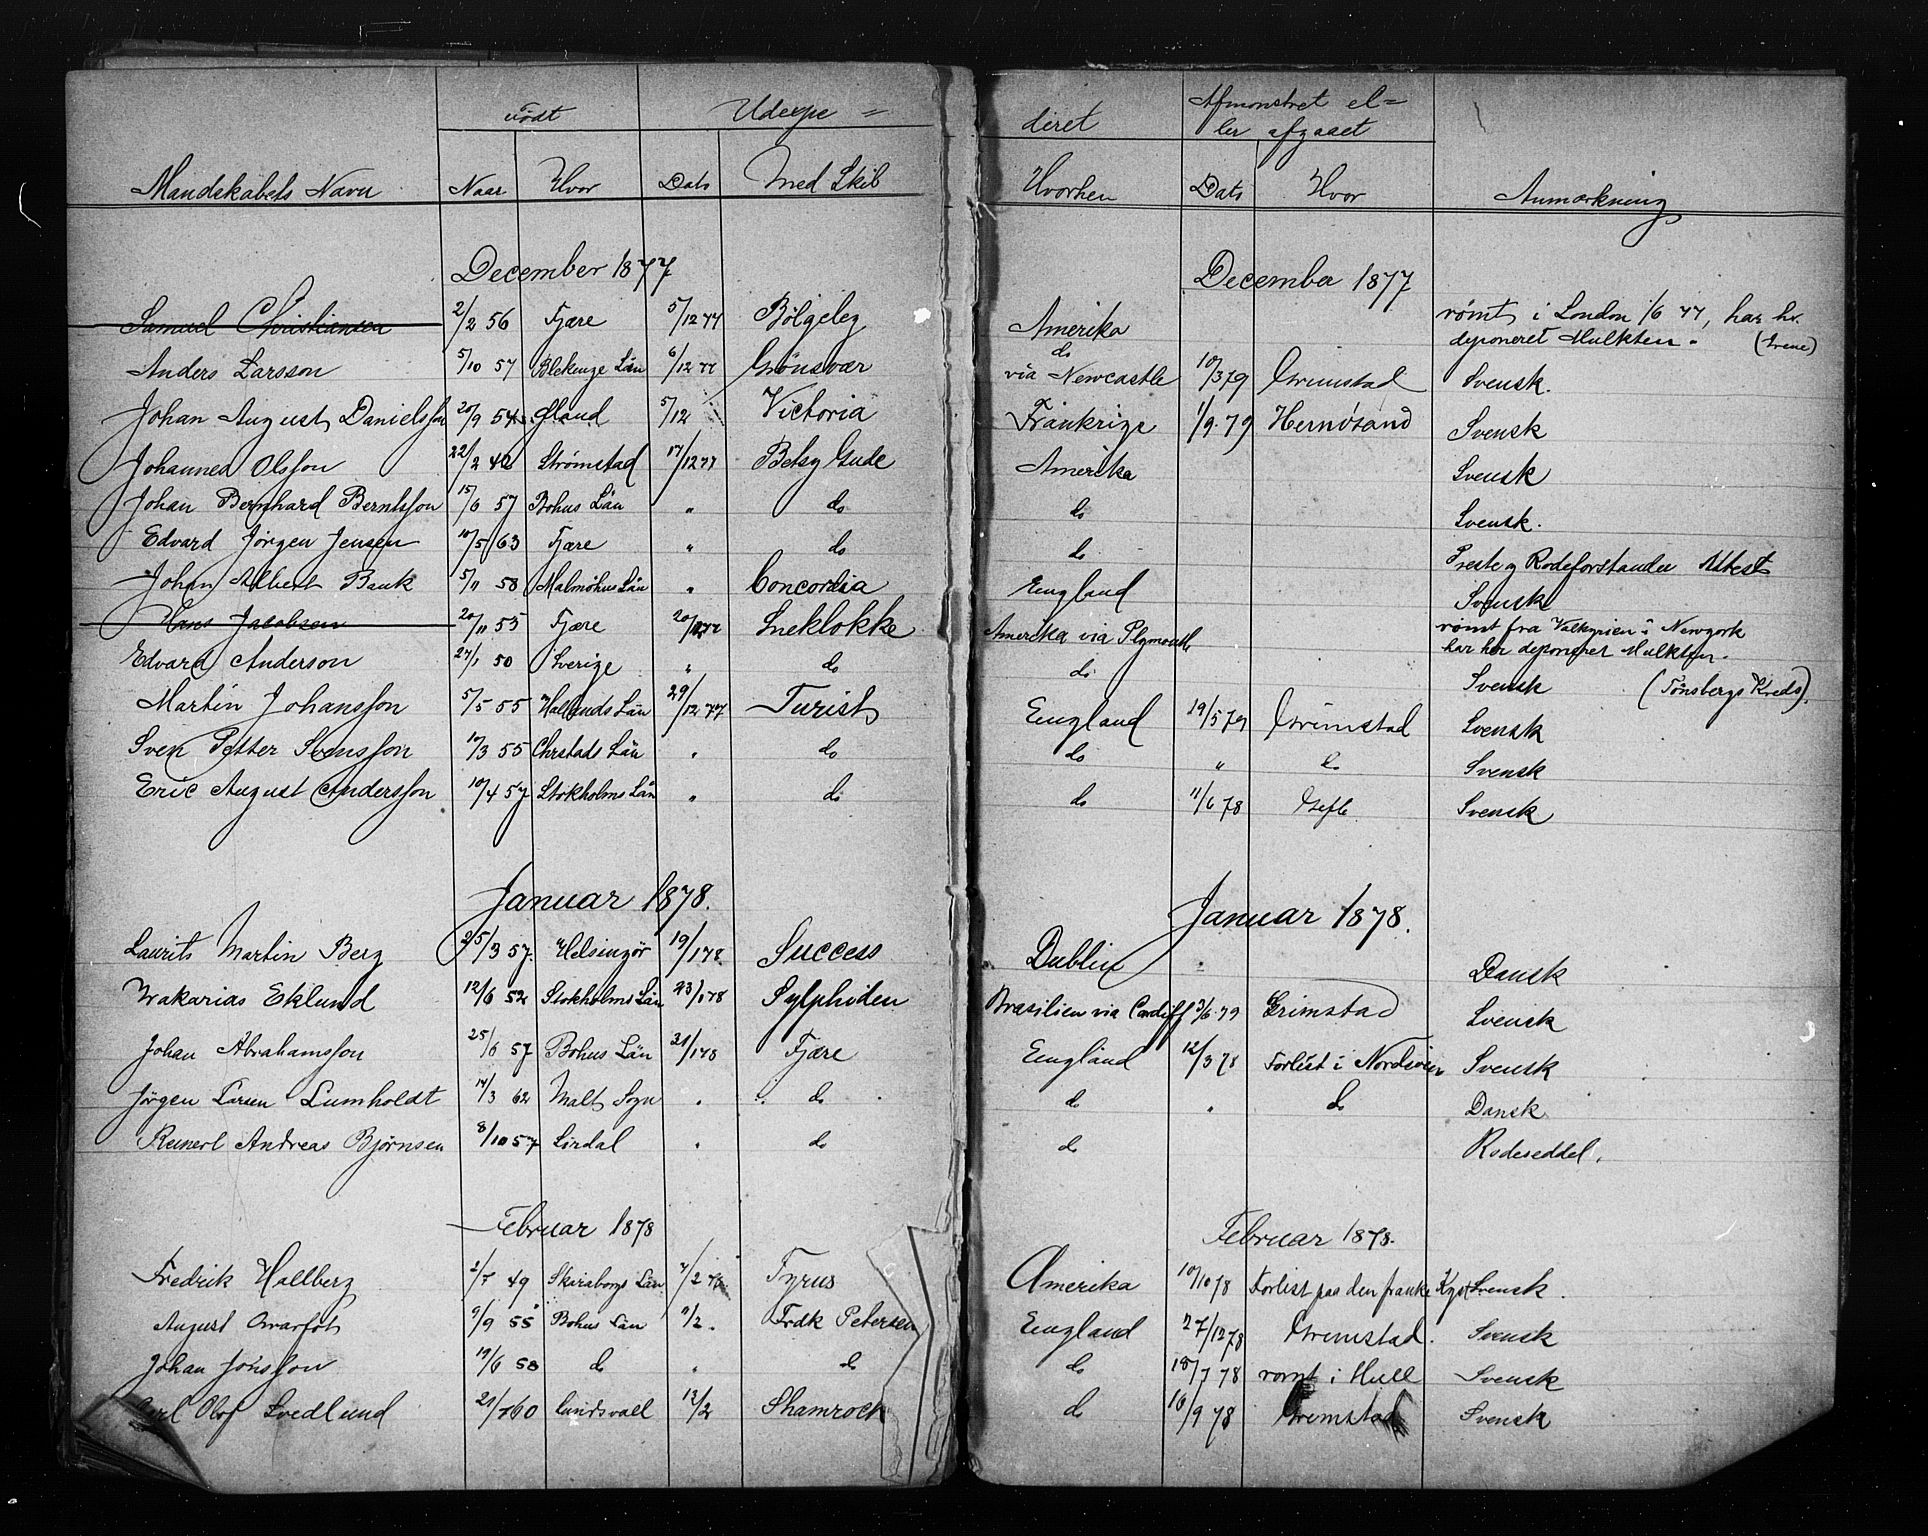 Født Udexpe =
Mandskabets Navn Naar Hvor Dato Med Skib
December 1877
Samuel Christiansen 2/2 56 Fjære 5/12 77 Bølgeley
Anders Larsson 5/10 57 Blekinge Län 6/12 77 Grönsvær
Johan August Danielsson 20/9 54 Øland 5/12 Victoria
Johannes Olsson 22/2 40 Strømstad 17/12 77 Betsy Gude
Johan Bernhard Berntsson 15/6 57 Bohus Län " do
Edvard Jörgen Jensen 10/5 63 Fjære " do
Johan Albert Bank 5/11 58 Malmöhus Län " Concordia
Hans Jacobsen 20/11 53 Fjære 20/12 77 Sneklokke
Edvard Anderson 27/1 50 Sverige " do
Martin Johansson 5/5 55 Hallands Län 29/12 77 Turist
Sven Petter Svensson 17/3 55 Chrstads Län " do
Eric August Andersson 10/4 57 Stokholms Län " do
Januar 1878.
Laurits Martin Berg 25/3 57. Helsingør 19/1 78 Success
Zakarias Eklund 12/6 52 Stokholms Län 23/1 78 Sylphiden
Johan Abrahamsson 25/6 57 Bohus Län 21/1 78 Fjære
Jörgen Larsen Lumholdt 14/3 62 Malt Sogn " do
Reinert Andreas Bjørnsen 8/10 57 Lirdal " do
Februar 1878
Fredrik Hallberg 2/7 49 Skaraborgs Län 7/2 78 Tyrus
August Qvarfot 9/9 55 Bohus Län 9/2. Frdk Petersen
Johan Jönsson 19/6 58 do " do
Carl Olof Svedlund 21/7 60 Sundsvall 13/2 Shamrock
diret Afmønstret el=
ler afgaaet
Hvorhen Dato Hvor Anmærkning
December 1877
Amerika rømt i London 1/6 77, har hr.
deponeret Mulkten. (Irene)
do
via Newcastle 10/3 79 Grimstad Svensk.
Frankrige 1/9 79 Hernösand Svensk
Amerika Svensk
do Svensk.
do Preste og Rodeforstander Attest
England Svensk
Amerika via Plymouth rømt fra Valkyrien i Newyork
har her deponeret Mulkten.
do Svensk (Tönsbergs Kreds).
England 19/5 79 Grimstad Svensk
do " do Svensk
do 11/6 78 Gefle Svensk
Januar 1878.
Dublin Dansk
Brasilien via Cardiff 3/6 79 Grimstad Svensk
England 12/3 78 Forlist i Nordsöen Svensk
do " do Dansk
do Rodeseddel.
Februar 1878.
Amerika 10/10 78 Forlist paa den franske Kyst Svensk.
England 27/12 78 Grimstad. Svensk
do 18/7 78 rømt i Hull Svensk
do 16/9 78 Grimstad Svensk